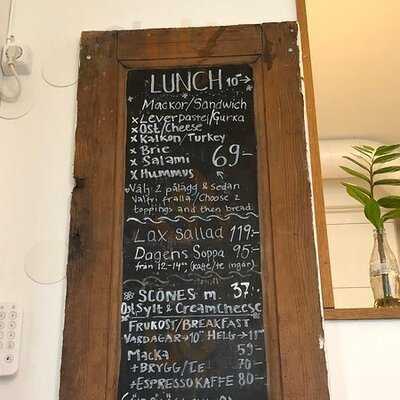 LUNCH 10→
Mackor/Sandwich
x Leverpastej/Gurka
x Ost/Cheese
x Kalkon/Turkey
x Brie
x Salami 69-
x Hummus
Välj 2 pålägg & sedan
Valfri fralla/Choose 2
toppings and then bread.
Lax Sallad 119:-
Dagens Soppa 95:-
från 12-14⁰⁰ (kaffe/te ingår)
SCONES m. 37:-
Ost Sylt & Creamcheese
FRUKOST/BREAKFAST
VARDAGAR→10³⁰ HELG→11³⁰
Macka 59-
+BRYGG/TE 70-
+ESPRESSOKAFFE 80-